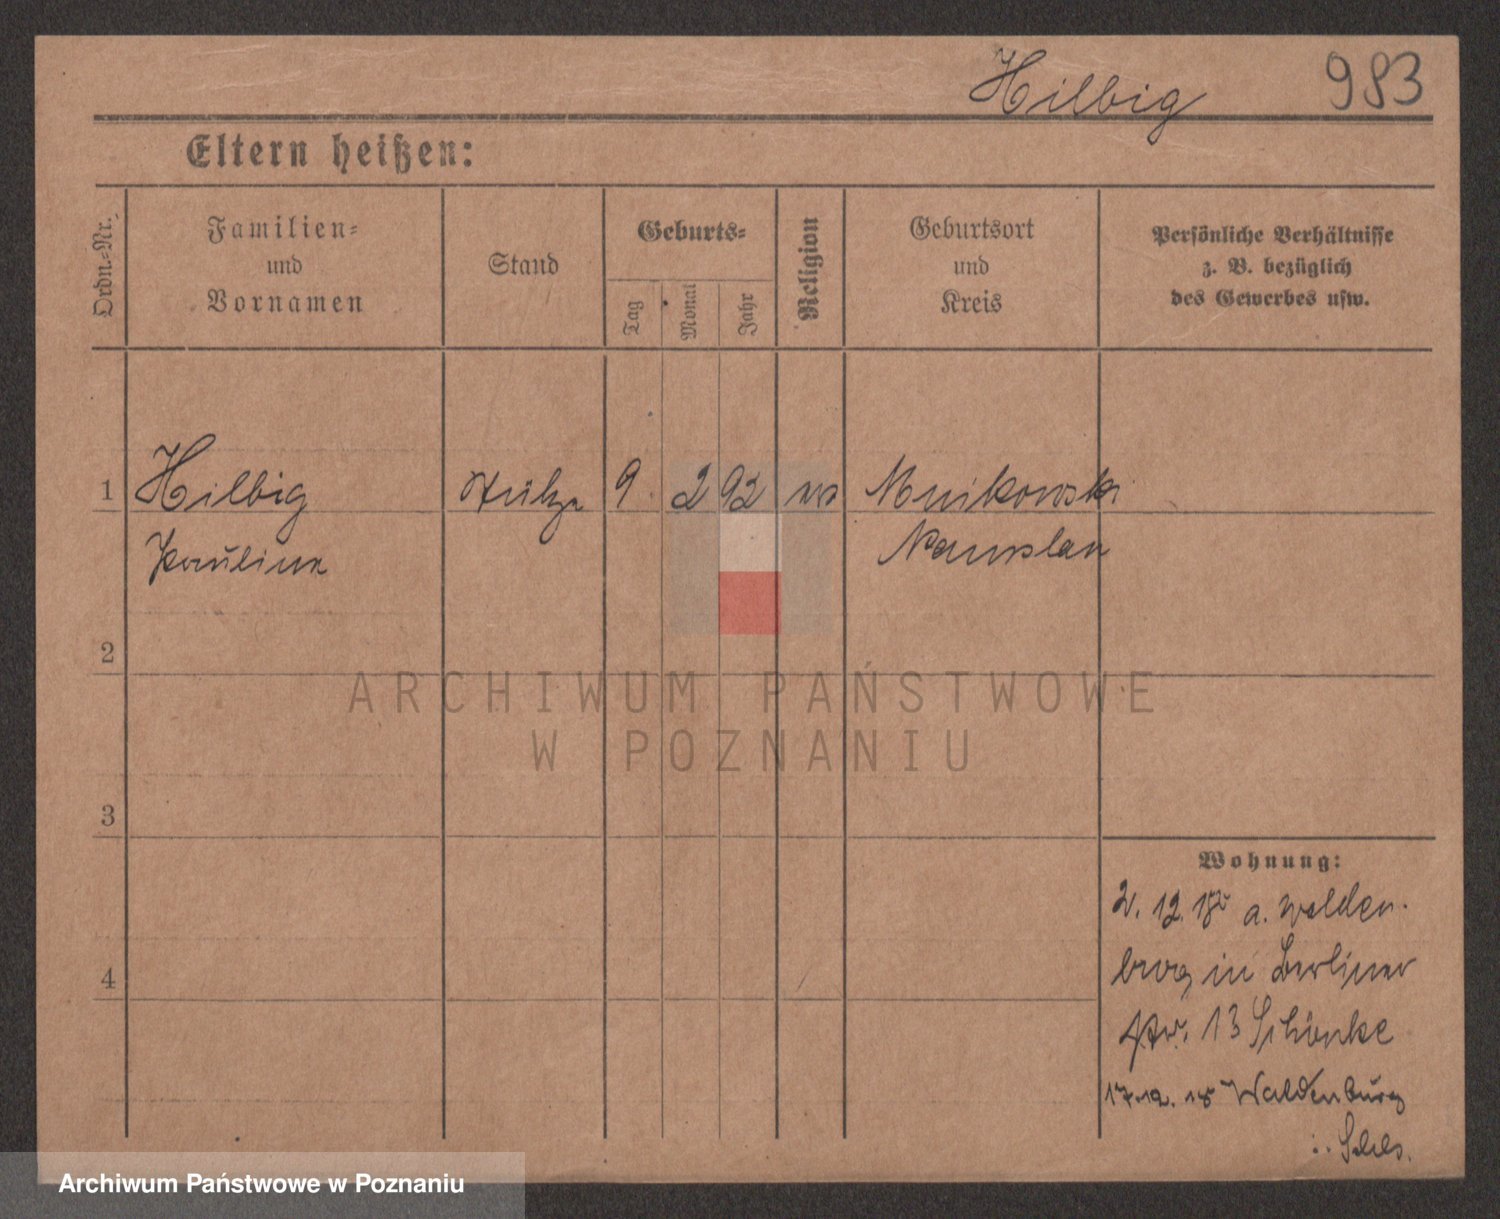 Hilbig 983
Eltern heißen:
Ordn.-Nr.
Familien-
und
Vornamen
Stand
Geburts-
Tag
Monat
Jahr
Religion
Geburtsort
und
Kreis
Persönliche Verhältnisse
z. B. bezüglich
des Gewerbes usw.
1 Hilbig Stütze 9. 2 92 ev
Pauline Namslau
2
3
4
Wohnung:
2. 12. 18 a. Walden-
burg in Berliner
Str. 13 Schönke
17.12. 18 Waldenburg
i. Schls.
ARCHIWUM PAŃSTWOWE
W POZNANIU
Archiwum Państwowe w Poznaniu